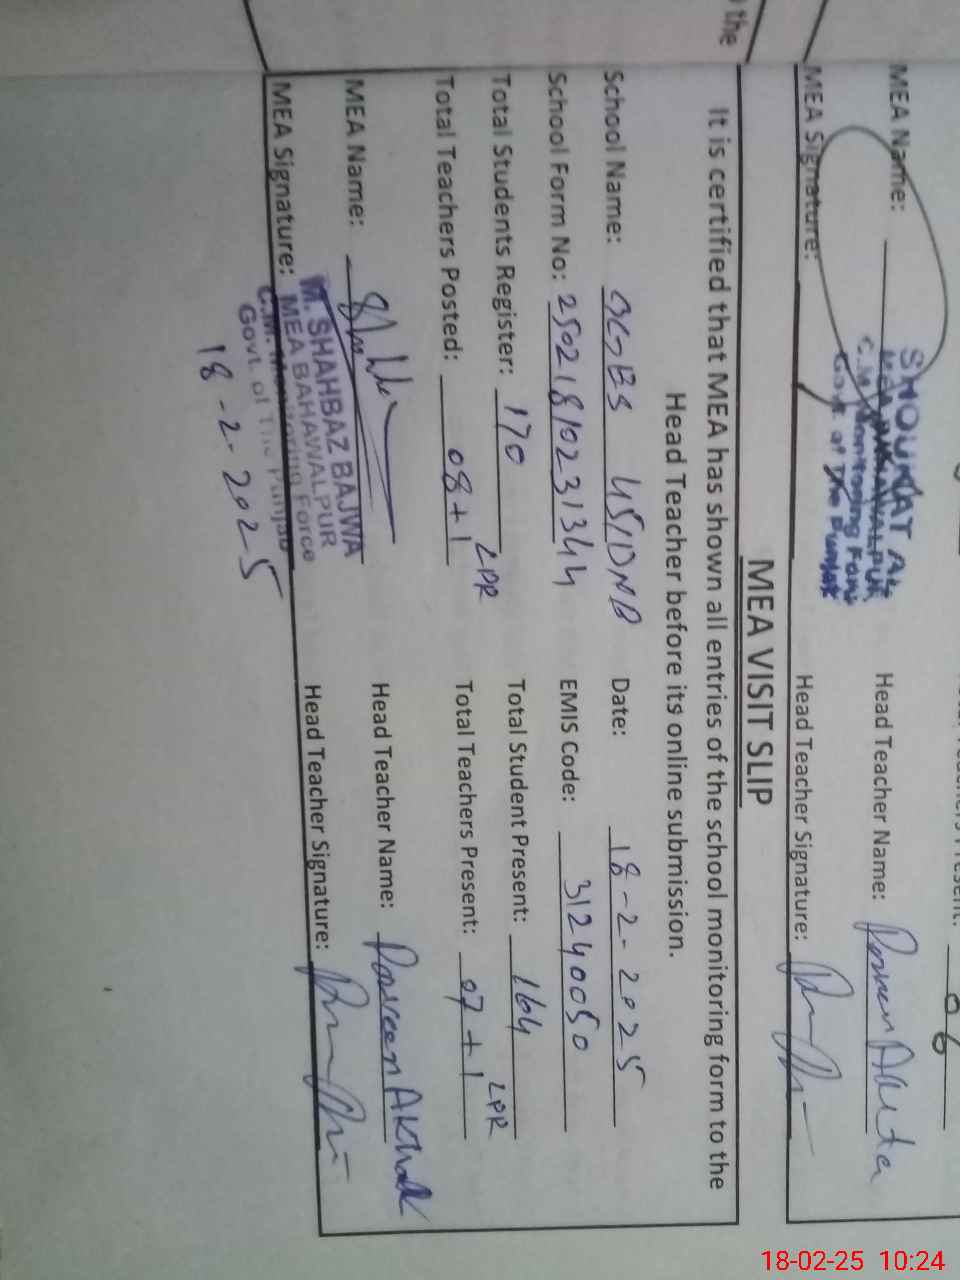 the
MEA Name:
SHOUKAT AL
MEA BAHAWALPUR
C.M Monitoring Force
Govt. of The Punjab
Head Teacher Name:
MEA Signature:
Head Teacher Signature:
06
MEA VISIT SLIP
It is certified that MEA has shown all entries of the school monitoring form to the
Head Teacher before its online submission.
School Name: GGES 45/DNB Date: 18-2-2025
School Form No: 25021810231344 EMIS Code: 31240050
Total Students Register: 170 Total Student Present: 164
Total Teachers Posted: 08+1 LPR Total Teachers Present: 07+1 LPR
MEA Name: Head Teacher Name: Parveen Akhtar
M. SHAHBAZ BAJWA
MEA Signature: MEA BAHAWALPUR Head Teacher Signature:
C.M. Monitoring Force
Govt. of The Punjab
18-2-2025
18-02-25 10:24